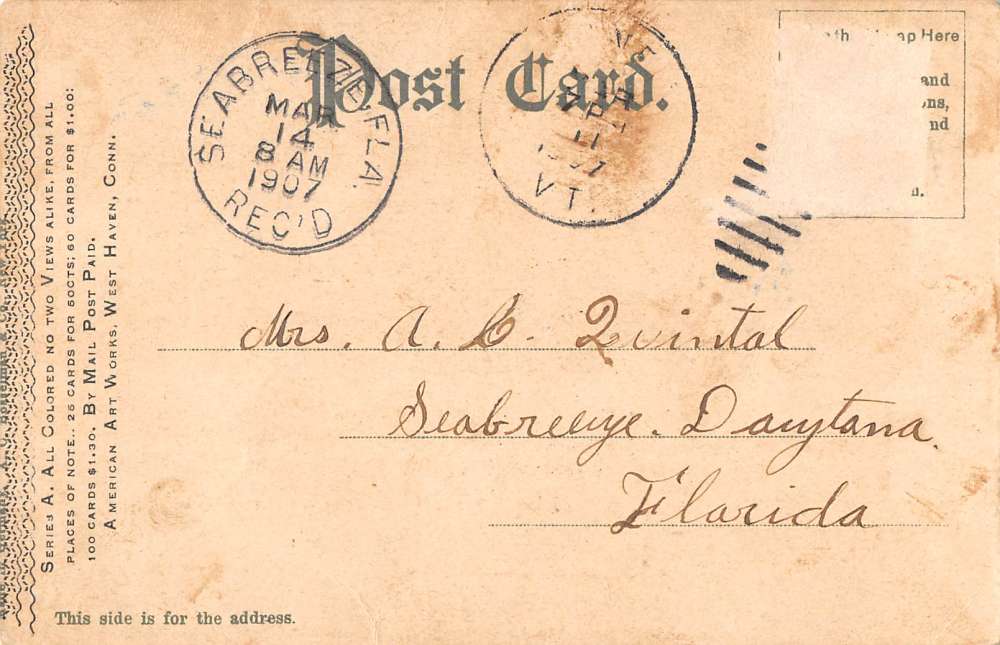 Post Card.
SEABREEZE, FLA.
MAR
14
8 AM
1907
REC'D
11
1907
VT.
Here
and
nd
Mrs. A. L. Quintal
Seabreeze. Daytana
Florida
SERIES A. ALL COLORED NO TWO VIEWS ALIKE, FROM ALL
PLACES OF NOTE.. 25 CARDS FOR 50CTS; 60 CARDS FOR $1.00;
100 CARDS $1.30. BY MAIL POST PAID.
AMERICAN ART WORKS, WEST HAVEN, CONN.
This side is for the address.